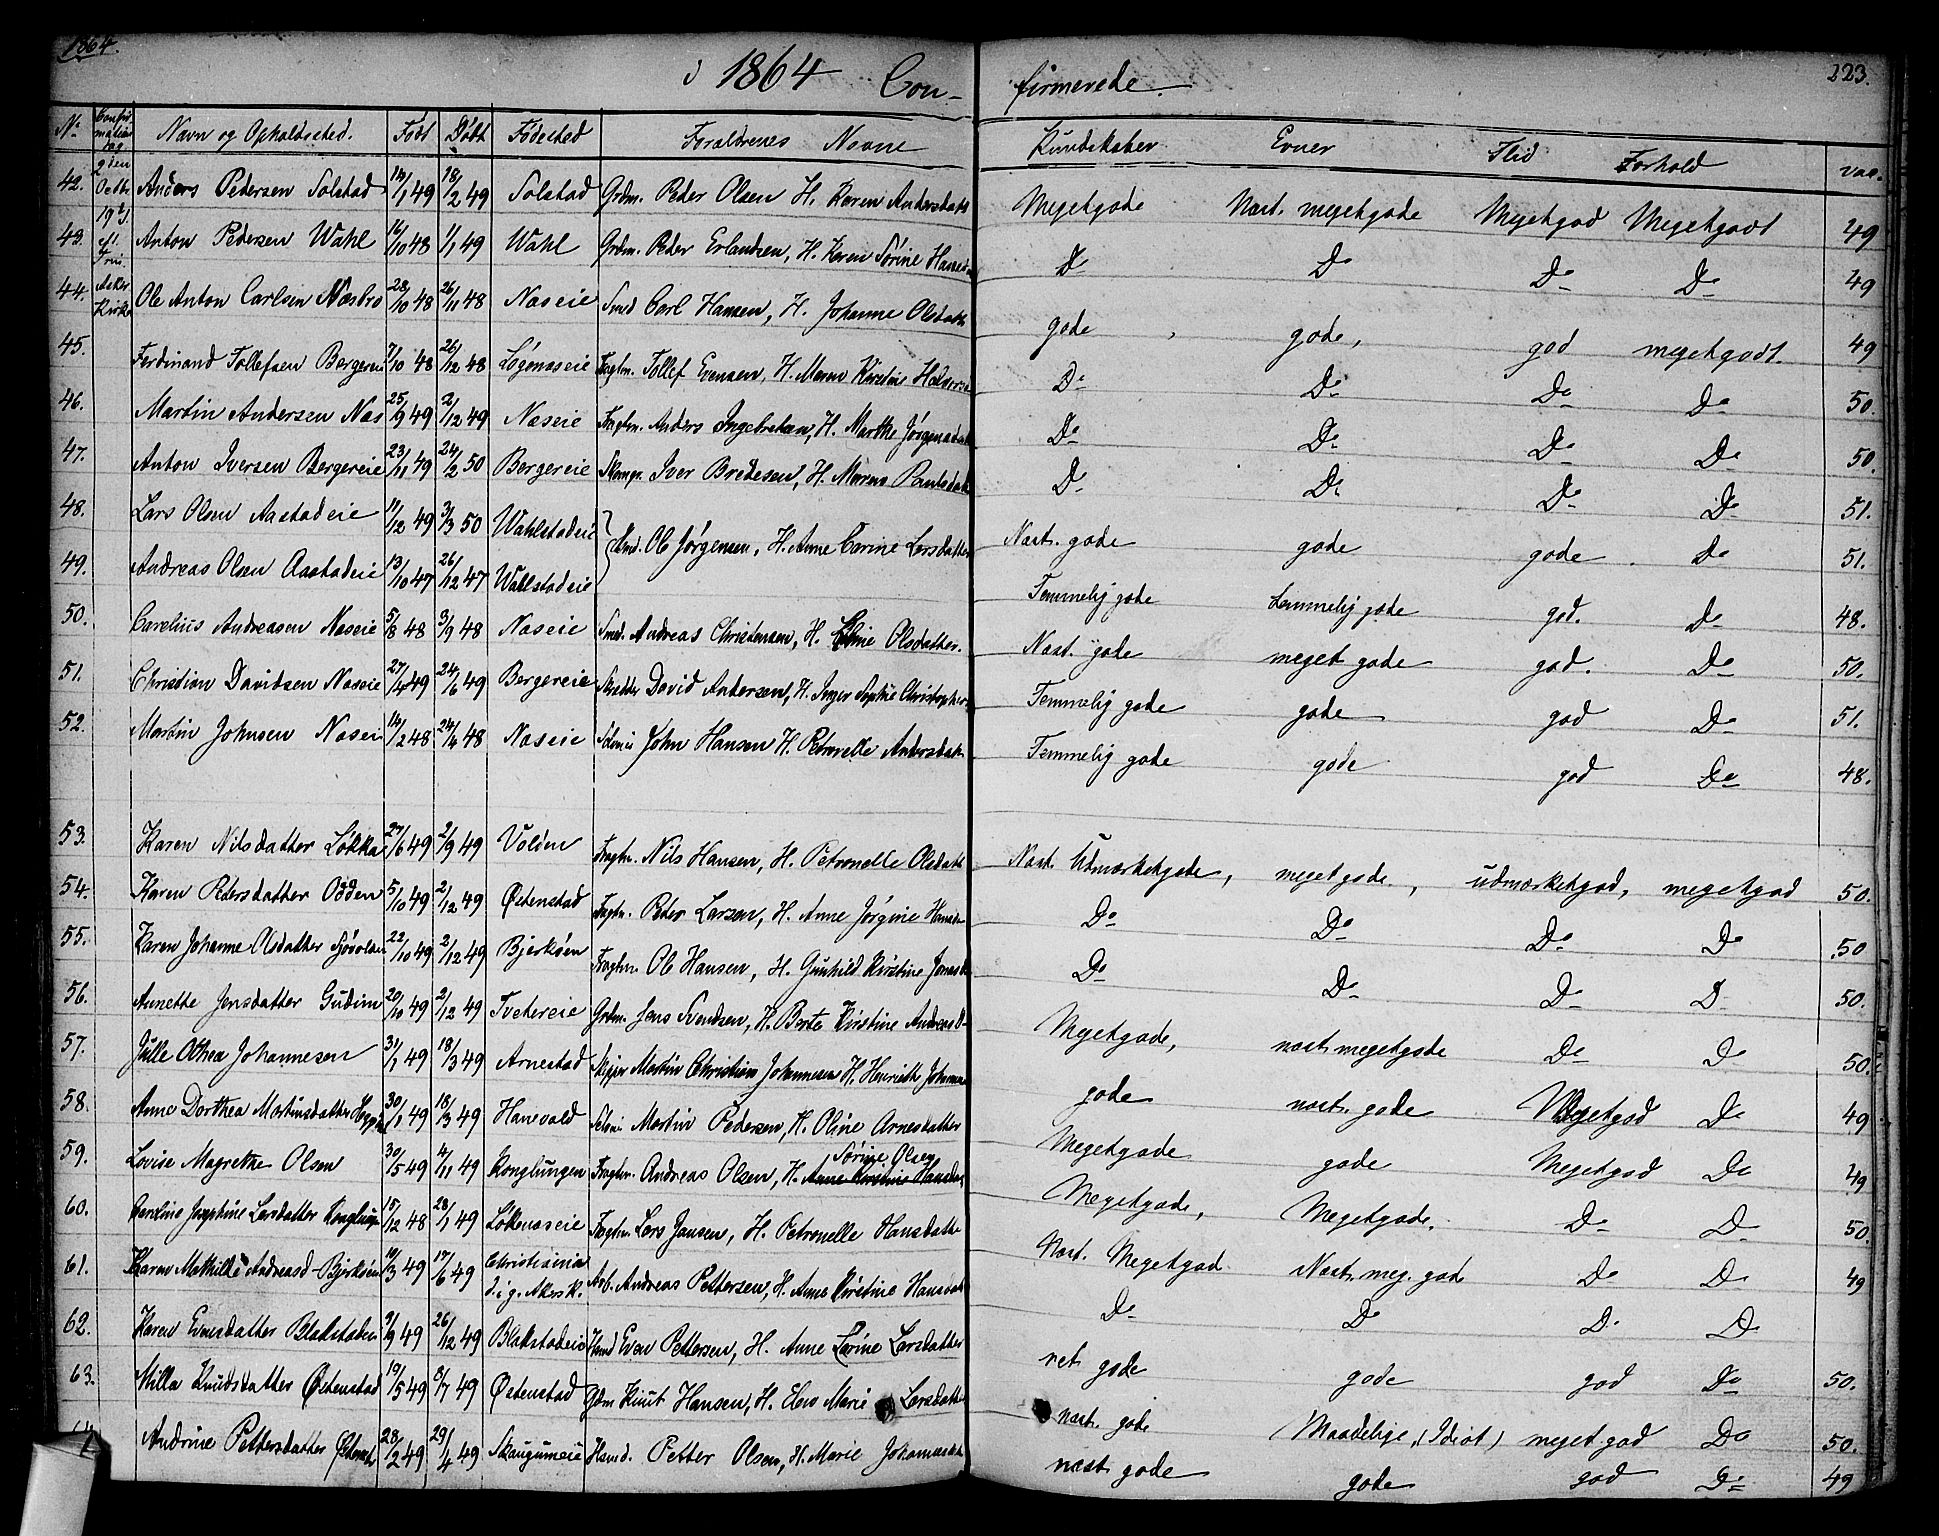 1864.
i 1864 Con- firmerede.
223.
No Confirmations Dag Navn og Opholdssted. Født Døbt Fødested Forældrenes Navne Kundskaber Evner Flid Forhold vac.
42. 2den Octbr. Anders Pedersen Solstad 14/1 49 18/2 49 Solstad Grdm. Peder Olsen H. Karen Andersdatt Megetgode Næst. megetgode Megetgod Megetgodt 49
43. 19 Anton Pedersen Wahl 16/10 48 1/1 49 Wahl Grdm. Peder Erlandsen, H. Karen Sørine Hansd Do Do Do Do 49
44. Asker Kirke Ole Anton Carlsen Næsbro 28/10 48 26/11 48 Næseie Smed Carl Hansen, H. Johanne Olsdatt gode gode, god megetgodt 49
45. Ferdinand Tollefsen Bergerei 7/10 48 26/12 48 Løgenæseie Fragtm. Tollef Evensen, H. Maren Kirstine Halvors Do Do Do Do 50.
46. Martin Andersen Næs 25/9 49 2/12 49 Næseie Fragtm. Anders Ingebretsen, H. Marthe Jørgensdatt Do Do Do Do 50.
47. Anton Iversen Bergereie 23/11 49 24/2 50 Bergereie Iver Bredesen, H. Maren Paulsdatt Do Do Do Do 51.
48. Lars Olsen Aastadeie 11/12 49 3/3 50 Wahlstadeie } Hmd. Ole Jørgensen, H. Anne Carine Larsdatter Næst. gode gode gode Do 51.
49. Andreas Olsen Aastadeie 13/10 47 26/12 47 Wahlstadeie Temmelig gode temmelig gode god. Do 48.
50. Carelius Andreasen Næseie 5/8 48 3/9 48 Næseie Smed. Andreas Christensen, H. Eline Olsdatter. Næst. gode meget gode god. Do 50.
51. Christian Davidsen Næseie 27/4 49 24/6 49 Bergereie Skrædder David Andersen, H. Inger Sophie Christopher Temmelig gode gode god Do 51.
52. Martin Johnsen Næseie 14/2 48 24/4 48 Næseie John Hansen H. Petronelle Andersdatt Temmelig gode gode god Do 48.
53. Karen Nilsdatter Løkka 27/6 49 2/9 49 Volden Fragtm. Nils Hansen, H. Petronelle Olsdatt Næst. Udmærketgode, megetgode, udmærketgod, megetgod 50.
54. Karen Petersdatter Odden 5/10 49 2/12 49 Østenstad Fragtm. Peter Larsen, H. Anne Jørgine Hansd Do Do Do Do 50
55. Karen Johanne Olsdatter 22/10 49 2/12 49 Bjerkøen Fragtm. Ole Hansen, H. Gunhild Kirstine Jonasd Do Do Do Do 50.
56. Annette Jensdatter Gudim 20/10 49 2/12 49 Tvetereie Grdm. Jens Svendsen, H. Berte Kirstine Andreasd- Megetgode, næst. megetgode Do Do 50.
57. Julle Othea Johannesen 31/1 49 18/3 49 Arnestad Skipper Martin Christian Johannesen H. Henriette Johanne gode næst. gode Megetgod Do 49
58. Anne Dorthea Martinsdatter 30/1 49 18/3 49 Hanevold Selvei Martin Pedersen, H. Oline Arnesdatter Megetgode gode Megetgod Do 49
59. Lovise Magrethe Olsen 30/5 49 4/11 49 Konglungen Fragtm. Andreas Olsen, H. Anne Kirstine Hansda Sørine Olsen Megetgode, Megetgode, Do Do 50.
60. Caroline Josephine Larsdatter Konglung 15/12 48 28/1 49 Løkenæseie Fragtm. Lars Jansen, H. Petronelle Hansdatt Næst. Megetgod Næst. meg. gode Do Do 49
61. Karen Mathilde Andreasd- Bjerkøen 10/3 49 17/6 49 Christiania d. i g. Akers K. Arb. Andreas Pettersen, H. Anne Kirstine Hansdatt Do Do Do Do
62. Karen Evensdatter Blakstadeie 9/9 49 26/12 49 Blakstadeie Hmd Even Pettersen, H. Anne Larsdatter ret gode gode god Do 50.
63. Milla Knudsdatter Østenstad 19/5 49 8/7 49 Østenstad Gdm Knut Hansen, H. Else Marie Larsdatte næst. gode Maadelige, (Idiot) meget god Do 50.
Andrine Pettersdatter Østenst 28/2 49 29/4 49 Skaugumeie Husmd. Petter Olsen, H. Marie Johannesdatt næst. gode gode god Do 49